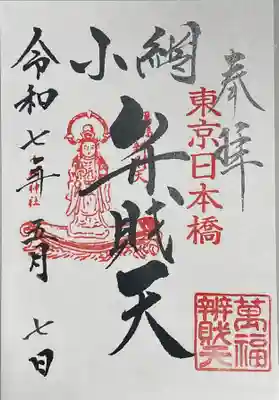 奉拝
東京日本橋
小網
弁財天
萬福
辨財天
令和七年五月七日
神社